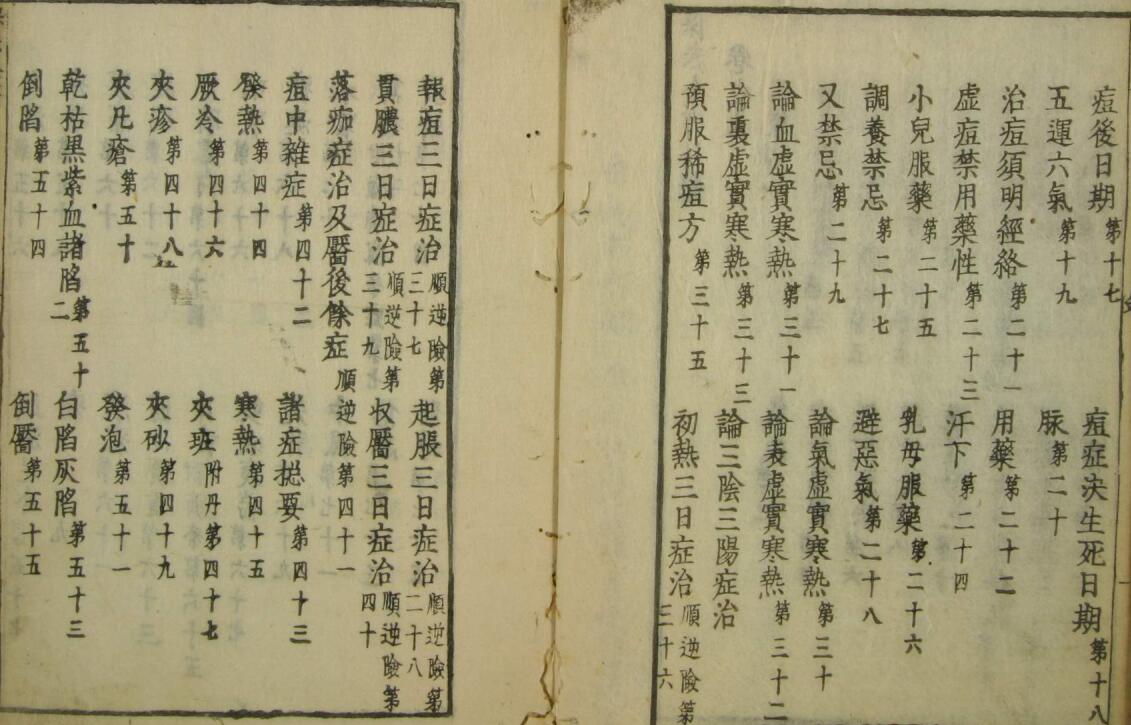 痘後日期第十七　痘症決生死日期第十八
五運六氣第十九　脉第二十
治痘須明經絡第二十一　用藥第二十二
虛痘禁用藥性第二十三　汗下第二十四
小兒服藥第二十五　乳母服藥第二十六
調養禁忌第二十七　避惡氣第二十八
又禁忌第二十九　論氣虛實寒熱第三十
論血虛實寒熱第三十一　論表虛實寒熱第三十二
論裏虛實寒熱第三十三　論三陰三陽症治
預服稀痘方第三十五　初熱三日症治順逆險第三十六
報痘三日症治順逆險第三十七　起脹三日症治順逆險第二十八
貫膿三日症治順逆險第三十九　収靨三日症治順逆險第四十
落痂症治及靨後餘症順逆險第四十一
痘中雜症第四十二　諸症捴要第四十三
發熱第四十四　寒熱第四十五
厥冷第四十六　夾斑附丹第四十七
夾疹第四十八　夾砂第四十九
夾凡瘡第五十　發泡第五十一
乾枯黑紫血諸䧟第五十二　白䧟灰䧟第五十三
倒䧟第五十四　倒靨第五十五